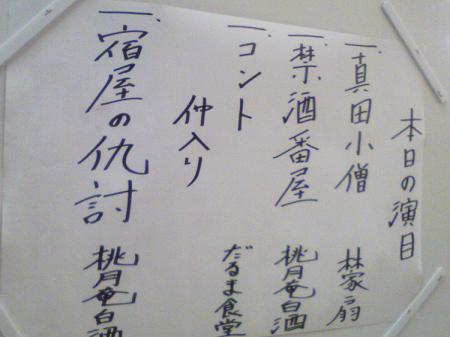 本日の演目
一、真田小僧 林家扇
一、禁酒番屋 桃月庵白酒
一、コント だるま食堂
仲入り
一、宿屋の仇討 桃月庵白酒